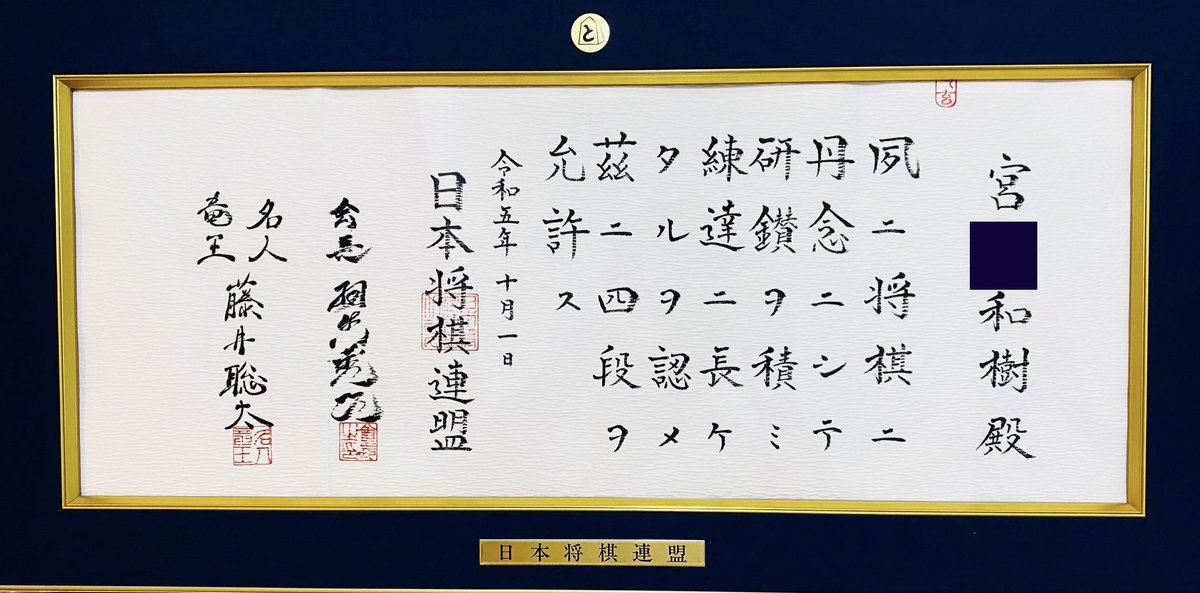 と
宮 和樹殿
夙ニ将棋ニ
丹念ニシテ
研鑽ヲ積ミ
練達ニ長ケ
タルヲ認メ
茲ニ四段ヲ
允許ス
令和五年 十月一日
日本将棋連盟
会長 羽生善治
名人
竜王 藤井聡太
日本将棋連盟